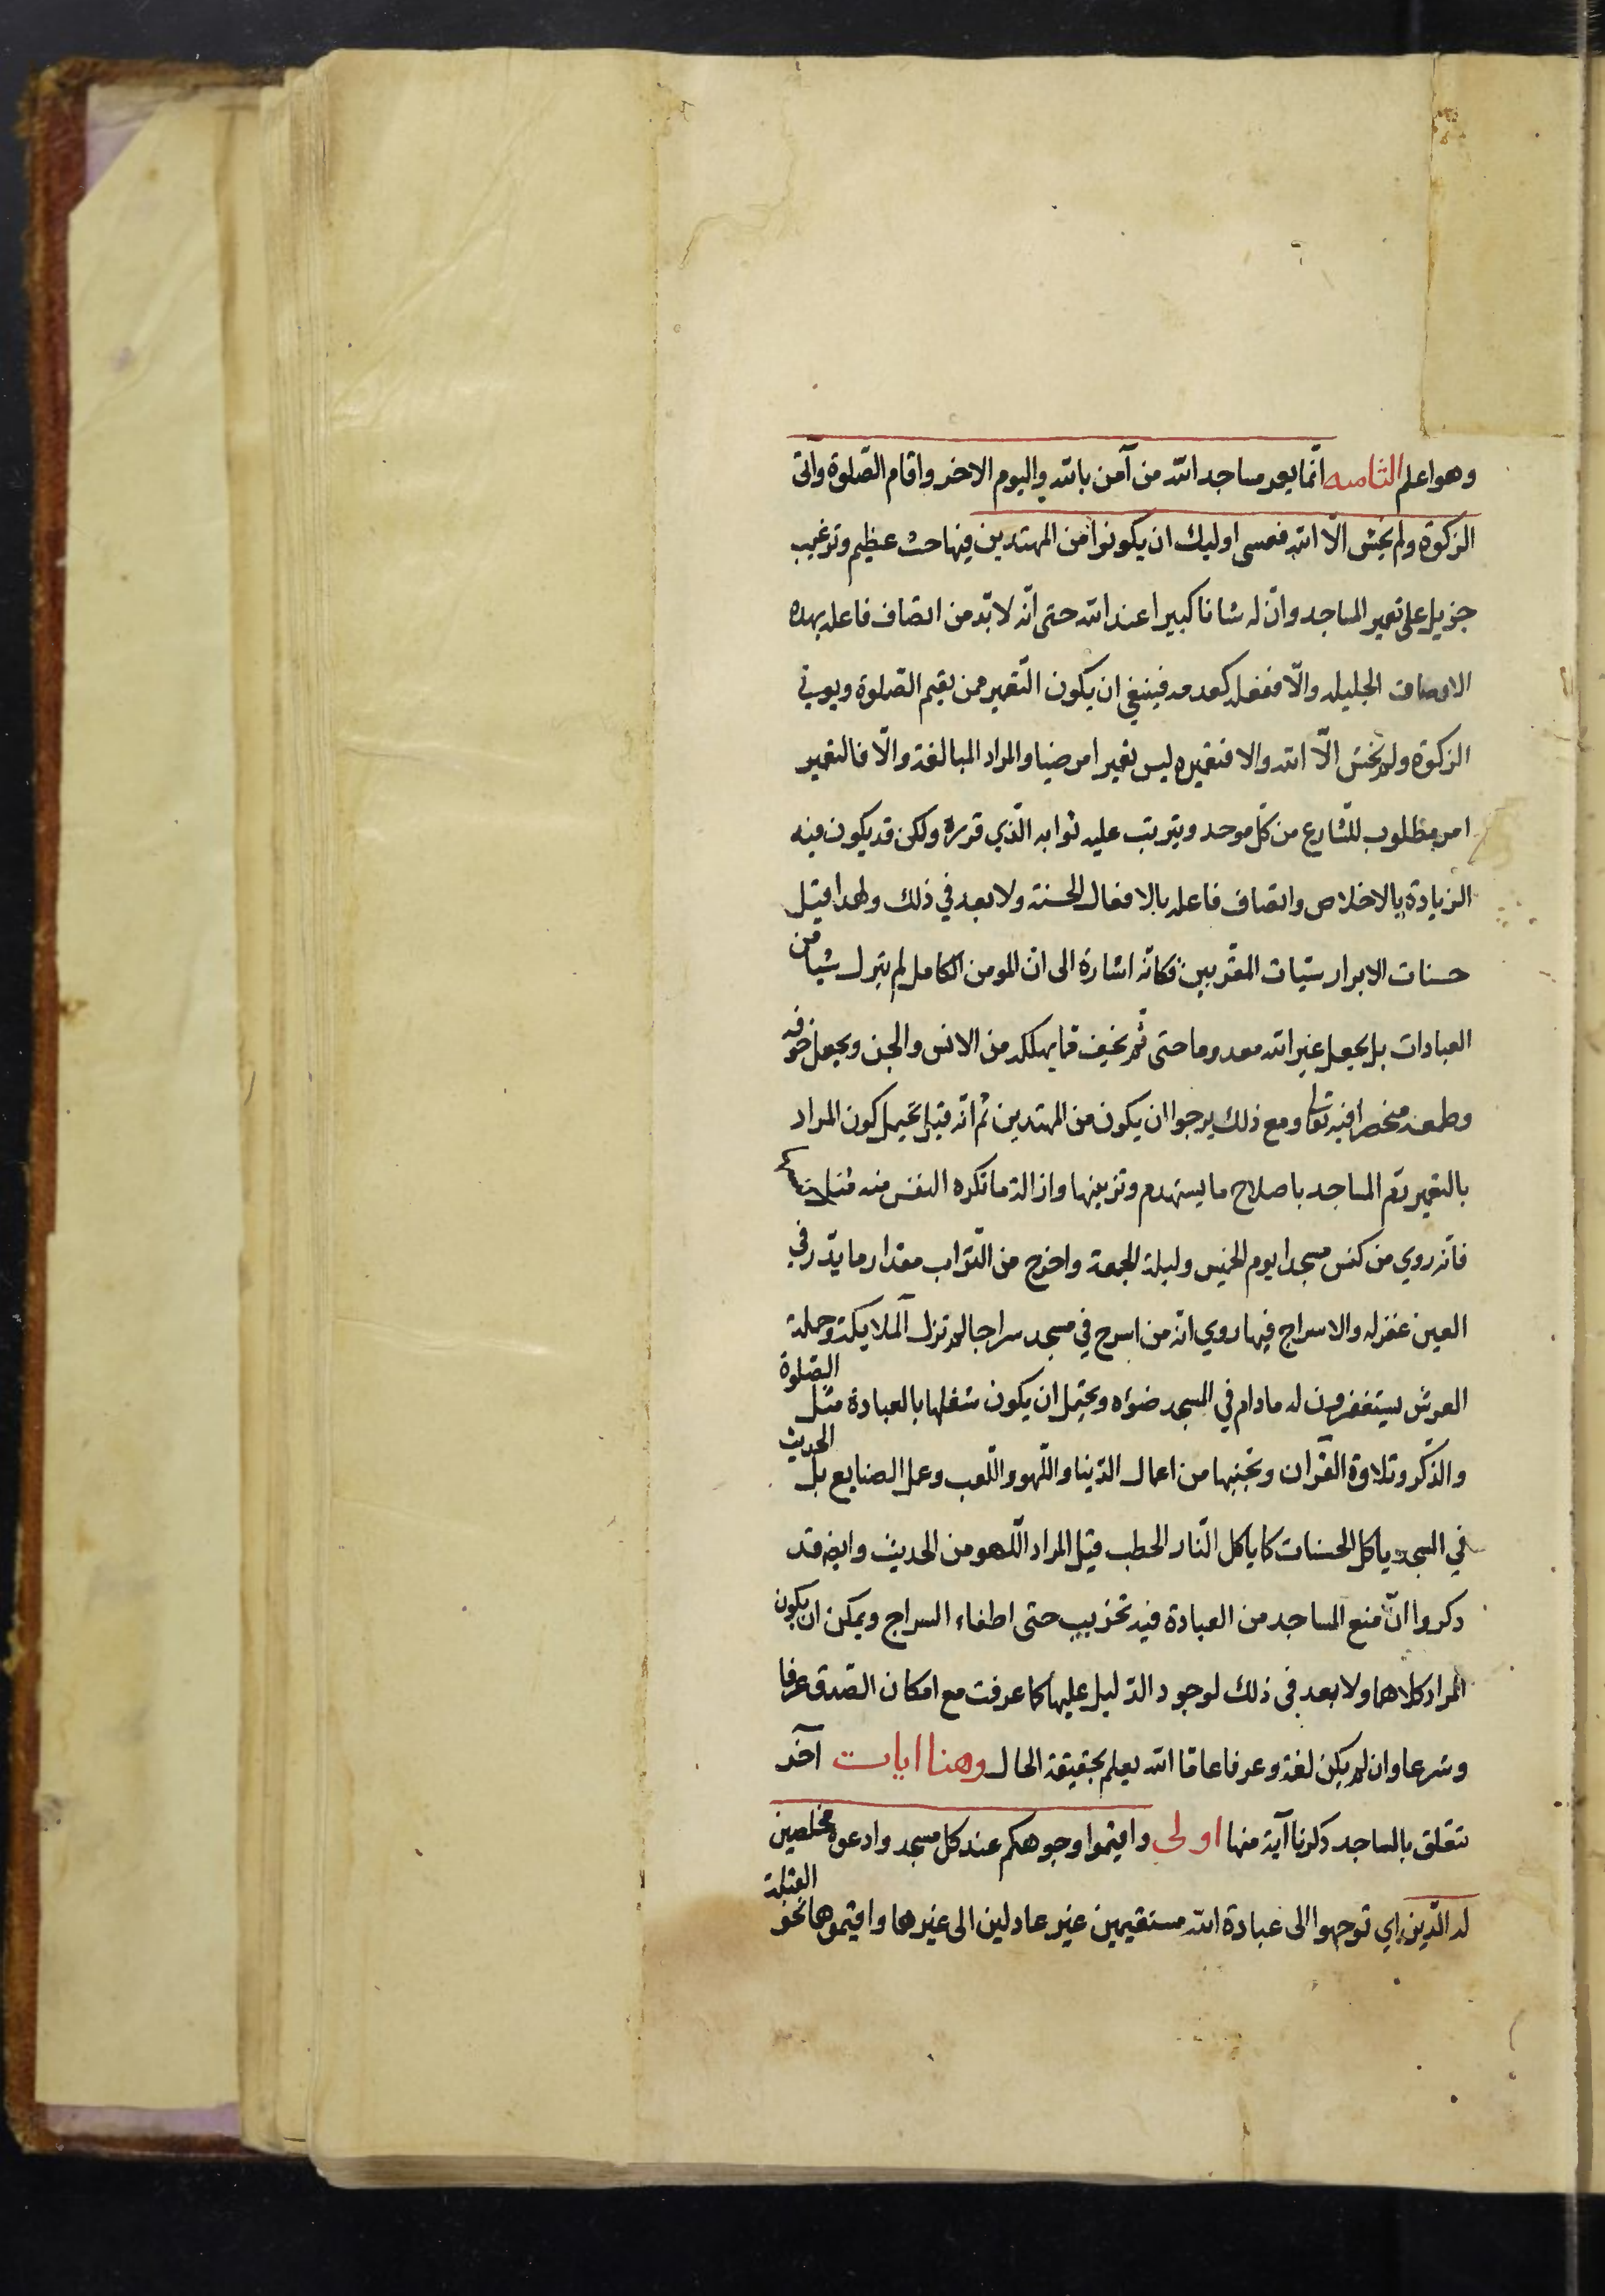 وهو اعلم الثامنه انّما يعمر مساجد الله من آمن بالله واليوم الاخر واقام الصّلوة وآتى
الزكوة ولم يخش الّا الله فعسى اوليك ان يكونوا من المهتدين فيها حث عظيم وترغيب
جزيل على تعمير المساجد وانّ له شانا كبيرا عند الله حتى انّه لا بدّ من اتصاف فاعله بهده
الاوصاف الجليله والّا ففعله كعدمه فينبغي ان يكون التّعمير ممن يقيم الصّلوة ويوتي
الزكوة ولم يخش الّا الله والا فتعميره ليس تعمير امرضيا والمراد المبالغة والّا فالتعمير
امر مطلوب للشّارع من كلّ موحد ويترتب عليه ثوابه الّذي قرره ولكن قد يكون فيه
الزيادة بالاخلاص واتصاف فاعله بالافعال الحسنة ولا بعد في ذلك ولهدا قيل
حسنات الابرار سيّات المقرّبين فكانّه اشارة الى انّ المومن الكامل لم يترك شيا من
العبادات بل يجعل غير الله معدوما حتى لم يخف ممّا يهلكه من الانس والجن ويجعل خوفه
وطمعه منحصرا فيه تعالى ومع ذلك يرجوا ان يكون من المهتدين ثم انّه قيل يحتمل كون المراد
بالتعمير رمّ المساجد باصلاح ما يستهدم وتزيينها وازالة ما تكره النفس منه مثل
فانّه روي من كنس مسجدا يوم الخميس وليلة الجمعة واخرج من التّراب مقدار ما يذّر في
العين غفر له والاسراج فيها روي انّه من اسرج في مسجد سراجا لم تزل الملايكة وحملة
العرش يستغفرون له مادام في المسجد ضوءه ويحتمل ان يكون شغلها بالعبادة مثل الصّلوة
والذّكر وتلاوة القرآن وتجنيبها من اعمال الدّنيا واللّهو واللّعب وعمل الصنايع بل الحديث
في المسجد ياكل الحسنات كما ياكل النّار الحطب قيل المراد اللّهو من الحديث وايضه قد
دكروا انّ منع المساجد من العبادة فيه تخريب حتى اطفاء السراج ويمكن ان يكون
المراد كلاهما ولا بعد في ذلك لوجود الدّليل عليها كما عرفت مع امكان الصّدق عرفا
وشرعا وان لم يكن لغة وعرفا عامّا الله يعلم بحقيقة الحال وهنا ايات آخر
تتعلق بالمساجد دكرنا آية منها اولى واقيموا وجوهكم عند كل مسجد وادعوه مخلصين
له الدّين اي توجهوا الى عبادة الله مستقيمين غير عادلين الى غيرها واقيموها نحو القبلة